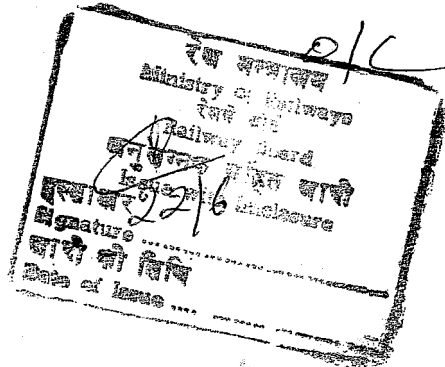 O/C
रेल मन्त्रालय
Ministry of Railways
रेलवे बोर्ड
Railway Board
अनुलग्नक सहित जारी
Issue with Enclosure
हस्ताक्षर 22/6
Signature ....................
जारी की तिथि
Date of Issue ....................